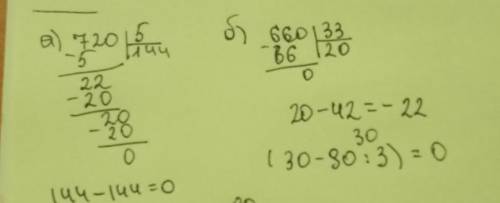 а) 720 | 5
-5 | 144
22
-20
20
-20
0
144-144=0
б) 660 | 33
-66 | 20
0
20-42=-22
30
(30-90:3)=0